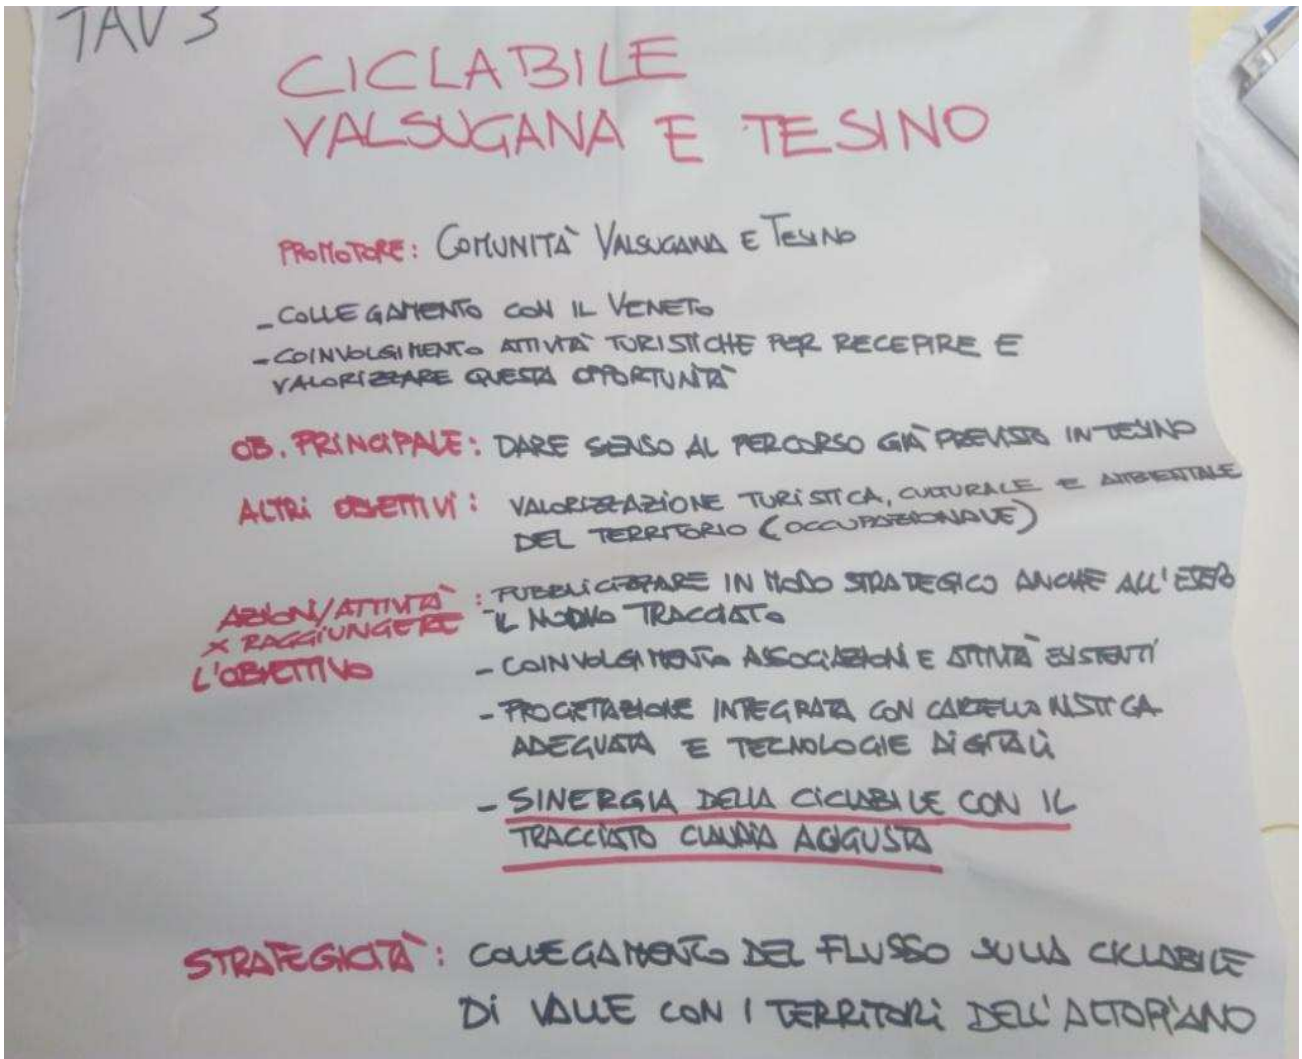 TAV 3
CICLABILE
VALSUGANA E TESINO
PROMOTORE: COMUNITÀ VALSUGANA E TESINO
- COLLEGAMENTO CON IL VENETO
- COINVOLGIMENTO ATTIVITÀ TURISTICHE PER RECEPIRE E
VALORIZZARE QUESTA OPPORTUNITÀ
OB. PRINCIPALE: DARE SENSO AL PERCORSO GIÀ PREVISTO IN TESINO
ALTRI OBIETTIVI: VALORIZZAZIONE TURISTICA, CULTURALE E AMBIENTALE
DEL TERRITORIO (OCCUPAZIONALE)
AZIONI/ATTIVITÀ : PUBBLICIZZARE IN MODO STRATEGICO ANCHE ALL'ESTERO
X RAGGIUNGERE IL NUOVO TRACCIATO
L'OBIETTIVO - COINVOLGIMENTO ASSOCIAZIONI E ATTIVITÀ ESISTENTI
- PROGETTAZIONE INTEGRATA CON CARTELLONISTICA
ADEGUATA E TECNOLOGIE DIGITALI
- SINERGIA DELLA CICLABILE CON IL
TRACCIATO CLAUDIA AUGUSTA
STRATEGICITÀ: COLLEGAMENTO DEL FLUSSO SULLA CICLABILE
DI VALLE CON I TERRITORI DELL'ALTOPIANO